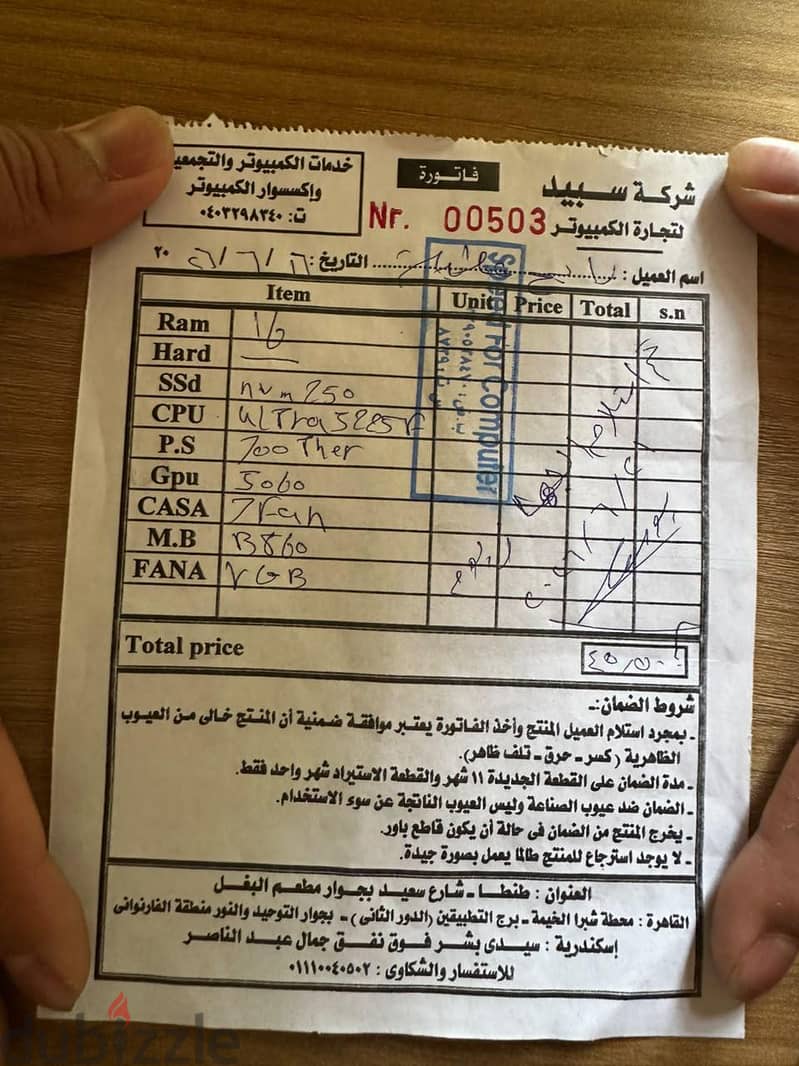 شركة سبيد
لتجارة الكمبيوتر
فاتورة
Nr. 00503
خدمات الكمبيوتر والتجمعي
وإكسسوار الكمبيوتر
ت: ٠٤٠٣٢٩٨٣٤٠
اسم العميل :
التاريخ: ١٦/٦/٢٠٢٦
Item Unit Price Total s.n
Ram 16
Hard —
SSd nvm 250
CPU ULTra 5 225F
P.S 700 Ther
Gpu 5060
CASA 7 Fan
M.B B860
FANA
Speed For Computer
Total price ٤٥,٥٠٠
شروط الضمان:-
- بمجرد استلام العميل المنتج وأخذ الفاتورة يعتبر موافقة ضمنية أن المنتج خالى من العيوب
الظاهرية (كسر - حرق - تلف ظاهر).
- مدة الضمان على القطعة الجديدة ١١ شهر والقطعة الاستيراد شهر واحد فقط.
- الضمان ضد عيوب الصناعة وليس العيوب الناتجة عن سوء الاستخدام.
- يخرج المنتج من الضمان فى حالة أن يكون قاطع باور.
- لا يوجد استرجاع للمنتج طالما يعمل بصورة جيدة.
العنوان : طنطا - شارع سعيد بجوار مطعم البغل
القاهرة : محطة شبرا الخيمة - برج التطبيقين (الدور الثانى) - بجوار التوحيد والنور منطقة الفارنوانى
إسكندرية : سيدى بشر فوق نفق جمال عبد الناصر
للاستفسار والشكاوى : ٠١١١٠٠٤٠٥٠٢
dubizzle